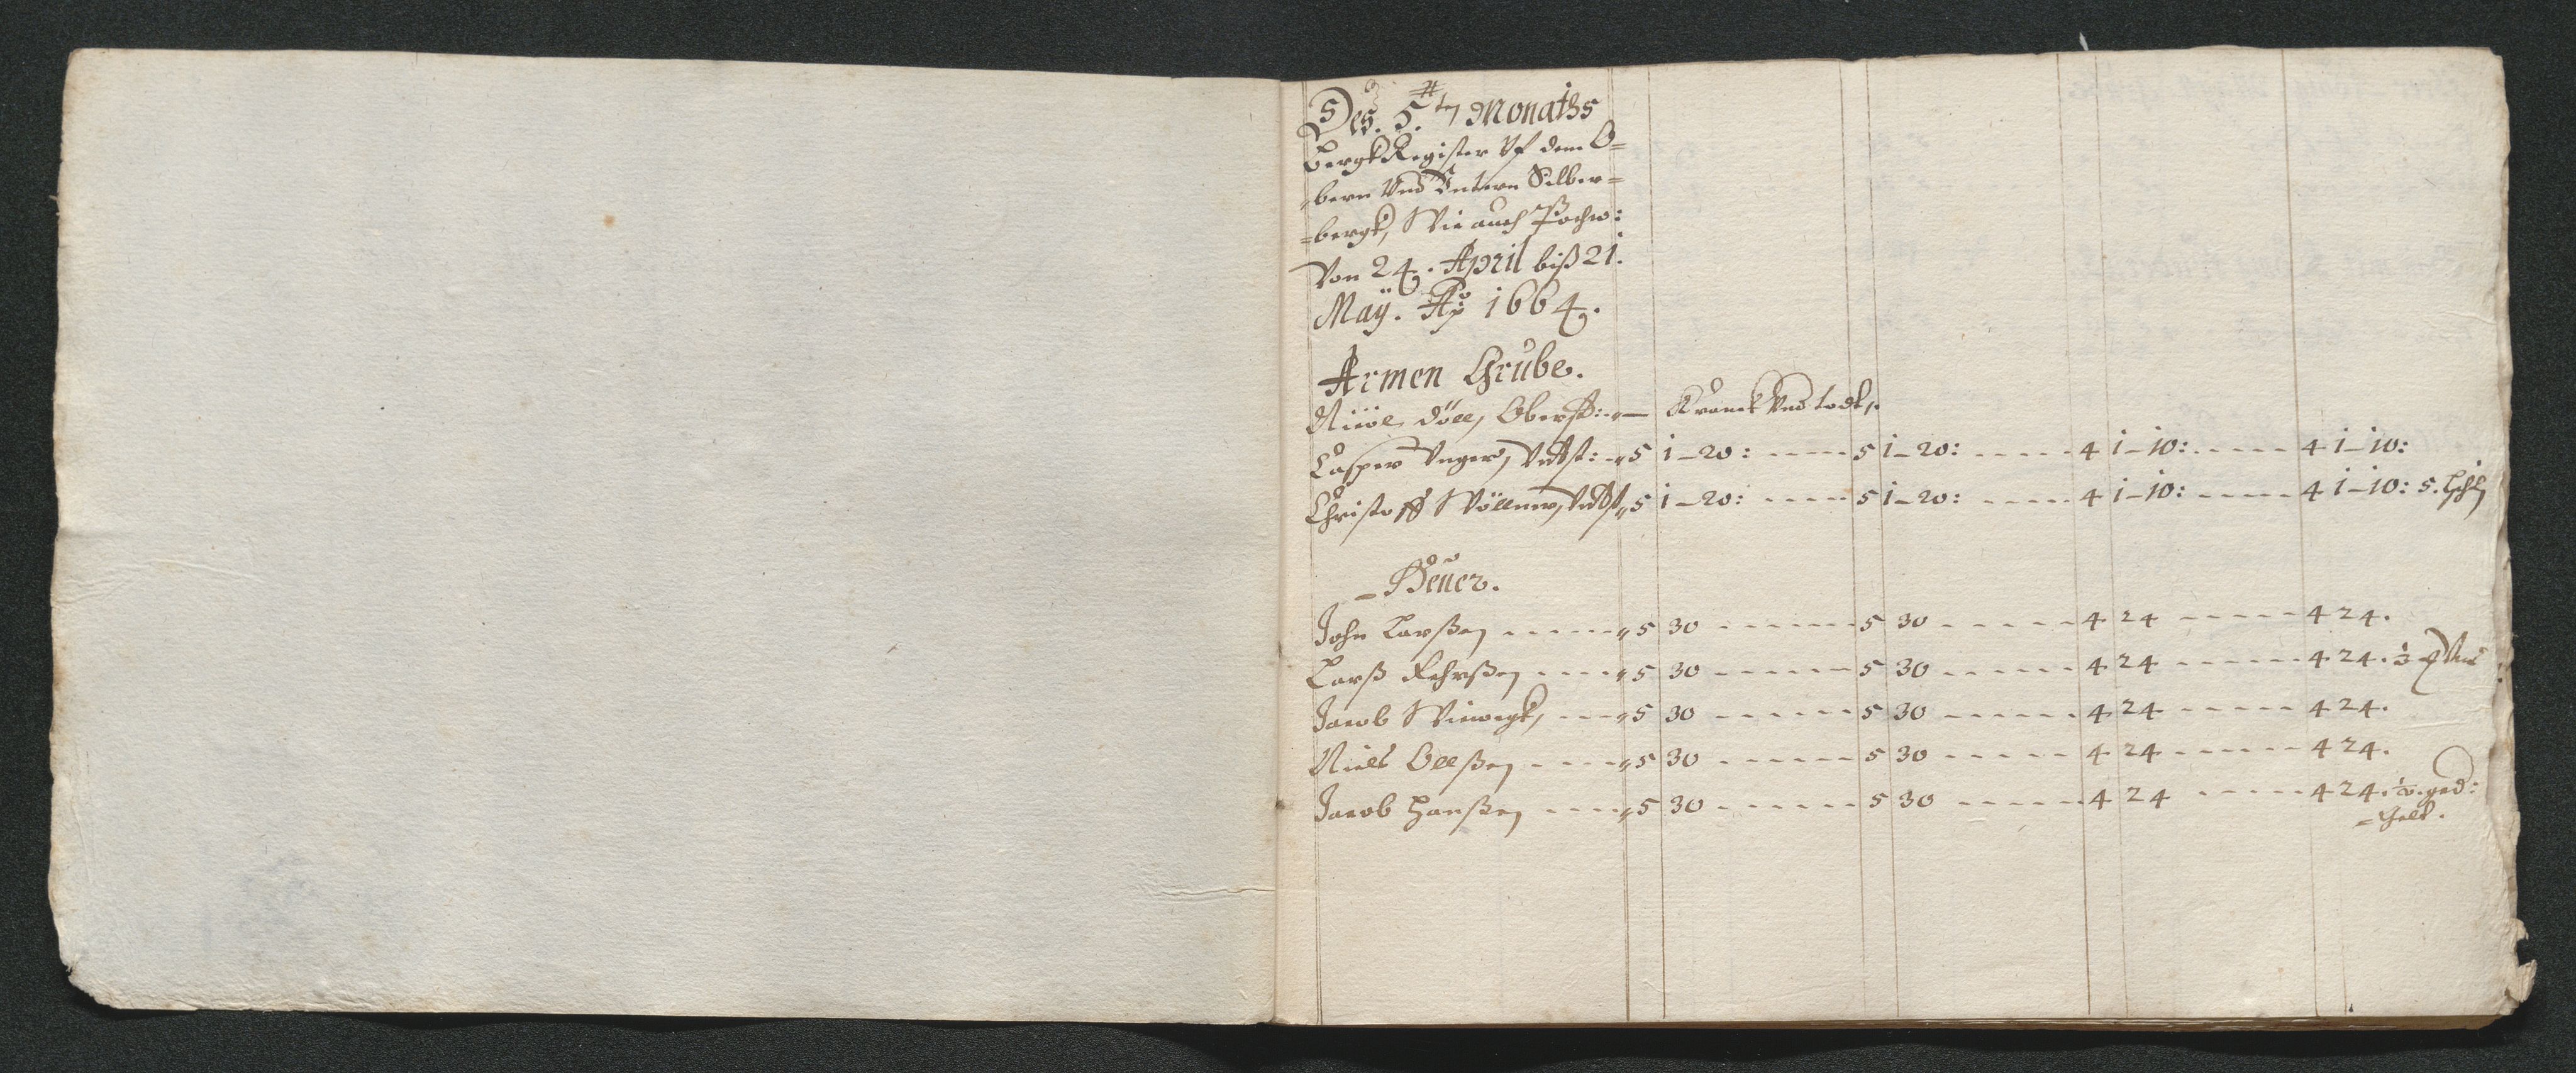 Des. 5.ten Monaths
Bergk Register Vf dem O=
bern Vnd Vntern Silber=
=bergk, Wie auch Pochw:
Von 24. April biß 21.
Maÿ. Aō 1664.
Armen Grube.
Döll, Oberst: — Kranck Vnd todt.
Casper Unger, Vndst: 5 1–20: 5 1–20: 4 1–10: 4 1–10:
Christoff Wöllner, Vndst 5 1–20: 5 1–20: 4 1–10: 4 1–10: 5.
Heuer.
John Larßen 5 30 5 30 4 24 4 24.
Larß Fehrßen 5 30 5 30 4 24 4 24.
Jacob Wiewegk, 5 30 5 30 4 24 4 24.
Niels Olßen 5 30 5 30 4 24 4 24.
Jacob Hanßen 5 30 5 30 4 24 4 24.